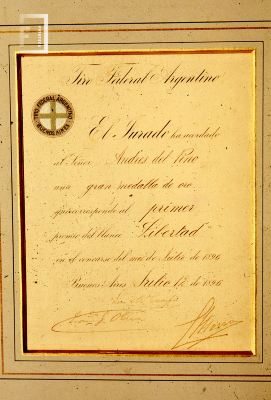 Tiro Federal Argentino
TIRO FEDERAL ARGENTINO
BUENOS AIRES
El Jurado ha acordado
al Señor Andrés del Pino
una gran medalla de oro
que corresponde al primer
premio del blanco Libertad
en el concurso del mes de Julio de 1896
Buenos Aires Julio 12 de 1896